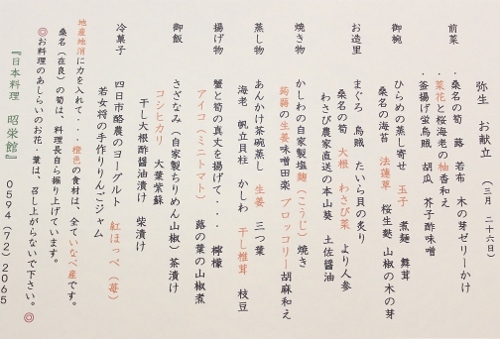 弥生 お献立 (三月 二十六日)
前菜 ・桑名の筍 蕗 若布 木の芽ゼリーかけ
・菜花と桜海老の柚香和え
・釜揚げ蛍烏賊 胡瓜 芥子酢味噌
御椀 ひらめの蒸し寄せ 玉子 煮麺 舞茸
桑名の海苔 法蓮草 桜生麩 山椒の木の芽
お造里 まぐろ 烏賊 たいら貝の炙り
桑名の筍 大根 わさび菜 より人参
わさび農家直送の本山葵 土佐醤油
焼き物 かしわの自家製塩麹(こうじ)焼き
蒟蒻の生姜味噌田楽 ブロッコリー胡麻和え
蒸し物 あんかけ茶碗蒸し 生姜 三つ葉
海老 帆立貝柱 かしわ 干し椎茸 枝豆
揚げ物 蟹と筍の真丈を揚げて・・・ 檸檬
アイコ(ミニトマト) 蕗の葉の山椒煮
御飯 さざなみ(自家製ちりめん山椒)茶漬け
コシヒカリ 大葉紫蘇
干し大根酢醤油漬け 柴漬け
冷菓子 四日市酪農のヨーグルト 紅ほっぺ(苺)
若女将の手作りりんごジャム
地産地消に力を入れて・・・橙色の食材は、全ていなべ産です。
桑名(在良)の筍は、料理長自ら掘り上げています。
◎お料理のあしらいのお花・葉は、召し上がらないで下さい。◎
『日本料理 昭栄館』 0594(72)2065